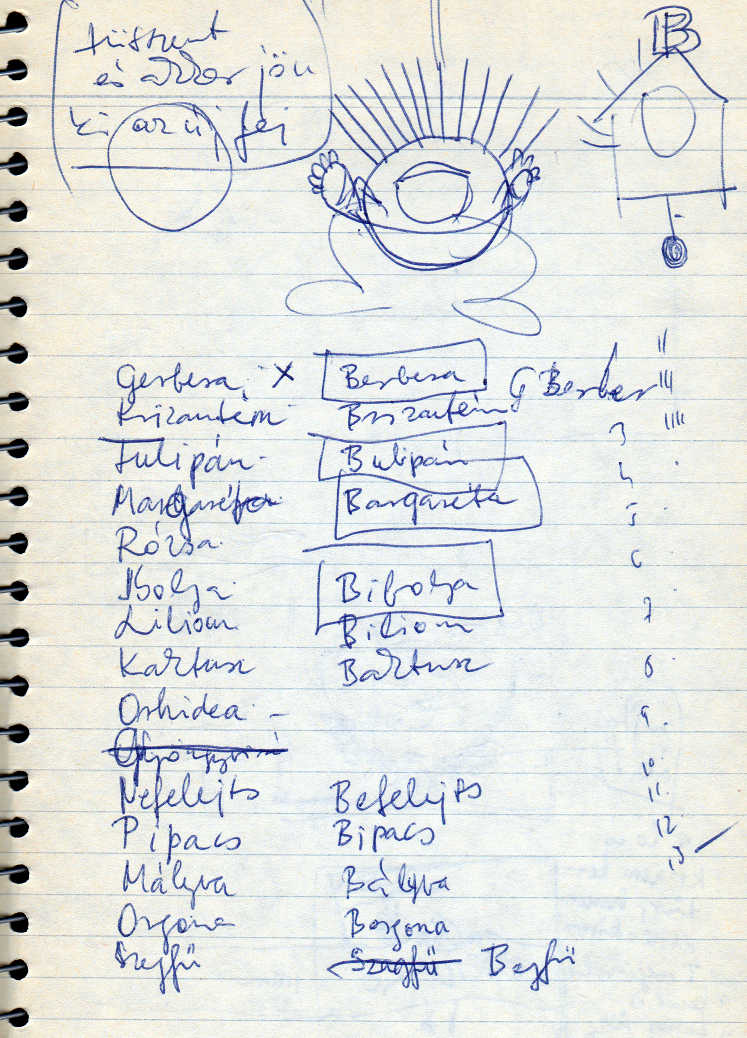 tüsszent
és akkor jön
ki az új fej
B
Gerbera X Berbera G Berber
Krizantém Brizantém
Tulipán Bulipán 3
Margaréta Bargaréta 4
Rózsa 5
Ibolya Bibolya 6
Liliom Biliom 7
Kaktusz Baktusz 8
Orhidea - 9.
Nefelejts Befelejts 10
11.
Pipacs Bipacs 12
Mályva Bályva 13
Orgona Borgona
Szegfű Szegfű Begfű